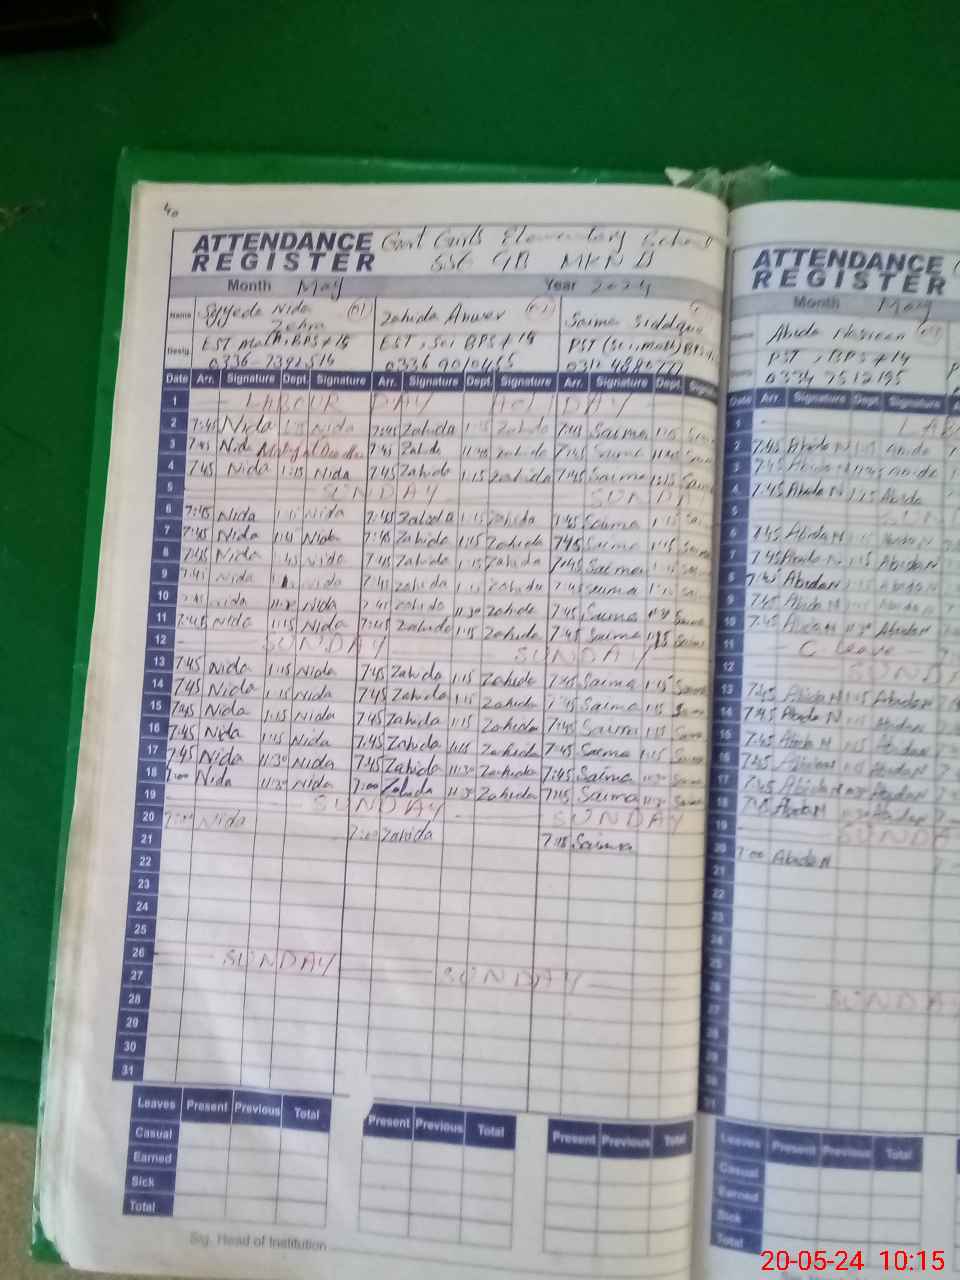 40
ATTENDANCE REGISTER Govt Girls Elementary School
556 GB MKN II
Month May Year 2024
Name Syyeda Nida Zehra Zahida Anwer Saima Siddque
Desig. EST Math, BPS # 15 EST, Sci BPS # 14 PST (Sci, Math) BPS
Date Arr. Signature Dept. Signature Arr. Signature Dept. Signature Arr. Signature Dept. Signature
1 LABOUR DAY HOLIDAY
2 7:45 Nida Nida 7:45 Zahida 1:15 Zahida 7:45 Saima 1:15
3 7:45 Nida 7:45 Zahida 11:45 Zahida 7:45 Saima
4 7:45 Nida 1:15 Nida 7:45 Zahida 1:15 Zahida 7:45 Saima
5 SUNDAY SUNDAY
6 7:45 Nida Nida 7:45 Zahida 1:15 Zahida 7:45 Saima 1:15
7 7:45 Nida Nida 7:45 Zahida 1:15 Zahida 7:45 Saima 1:15
8 7:45 Nida Nida 7:45 Zahida 1:15 Zahida 7:45 Saima
9 7:45 Nida Nida 7:45 Zahida 1:15 Zahida 7:45
10 7:45 Nida 11:30 Nida 7:45 Zahida 11:30 Zahida 7:45 Saima 11:30
11 7:45 Nida 1:15 Nida 7:45 Zahida 1:15 Zahida 7:45 Saima 1:15
12 SUNDAY SUNDAY
13 7:45 Nida 1:15 Nida 7:45 Zahida 1:15 Zahida 7:45 Saima 1:15
14 7:45 Nida 1:15 Nida 7:45 Zahida 1:15 Zahida 7:45 Saima 1:15
15 7:45 Nida 1:15 Nida 7:45 Zahida 1:15 Zahida 7:45 Saima 1:15
16 7:45 Nida 1:15 Nida 7:45 Zahida 1:15 Zahida 7:45 Saima 1:15
17 7:45 Nida 11:30 Nida 7:45 Zahida 11:30 Zahida 7:45 Saima 11:30
18 7:00 Nida 11:30 Nida 7:00 Zahida 11:30 Zahida 7:45 Saima 11:30
19 SUNDAY SUNDAY
20 7:00 Nida 7:00 Zahida 7:45 Saima
21
22
23
24
25
26 SUNDAY SUNDAY
27
28
29
30
31
Leaves Present Previous Total Present Previous Total Present Previous Total
Casual
Earned
Sick
Total
Sig. Head of Institution
ATTENDANCE REGISTER
Month May
Abida Nasreen
PST, BPS # 14
0334 7512195
Date Arr. Signature Dept. Signature
1
2 7:45 Abida N
3 7:45
4 7:45 Abida N 1:15 Abida
5
6 7:45 Abida N 1:15 Abida N
7 7:45 Abida N 1:15 Abida N
8 7:45 Abida N
9 7:45 Abida N Abida N
10 7:45 Abida N Abida N
11 C Leave
12 SUND
13 7:45 Abida N 1:15 Abida N
14 7:45 Abida N Abida N
15 7:45 Abida N 1:15 Abida N
16 7:45 Abida N
17 7:45 Abida N Abida N
18 7:45 Abida N
19 SUNDA
20 7:00 Abida N
21
22
23
24
25
26 SUNDAY
27
28
29
30
31
Leaves Present Previous Total
Casual
Earned
Sick
Total
20-05-24 10:15